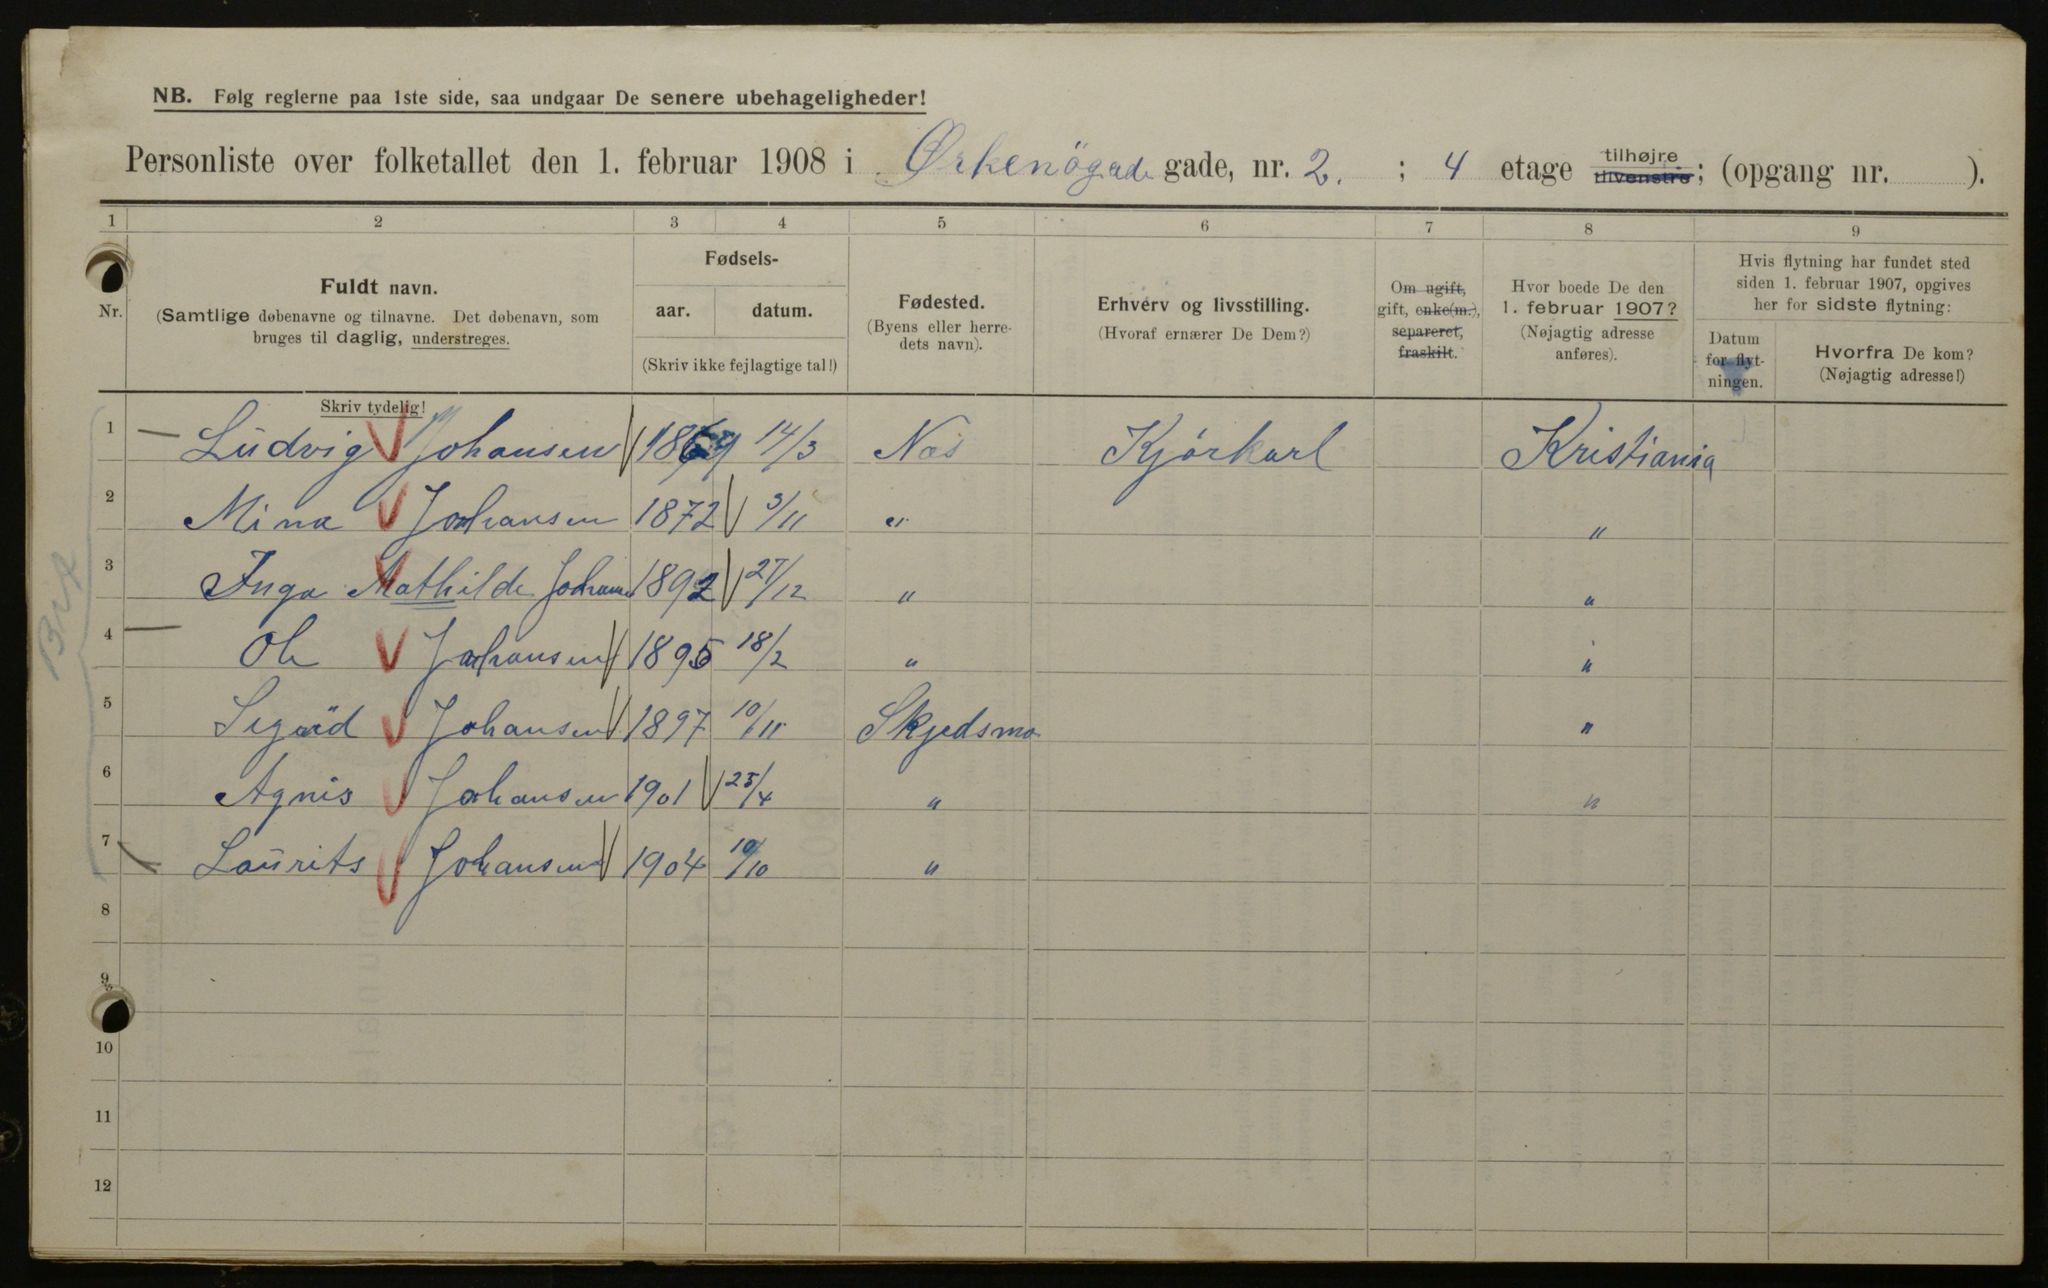 NB. Følg reglerne paa 1ste side, saa undgaar De senere ubehageligheder!
Personliste over folketallet den 1. februar 1908 i Ørkenögade gade, nr. 2. ; 4 etage tilhøjre tilvenstre; (opgang nr. ).
1 2 3 4 5 6 7 8 9
Nr.
Fuldt navn.
(Samtlige døbenavne og tilnavne. Det døbenavn, som
bruges til daglig, understreges.
Skriv tydelig!
Fødsels-
aar. datum.
(Skriv ikke fejlagtige tal!)
Fødested.
(Byens eller herre-
dets navn).
Erhverv og livsstilling.
(Hvoraf ernærer De Dem?)
Om ugift,
gift, enke(m.),
separeret,
fraskilt.
Hvor boede De den
1. februar 1907?
(Nøjagtig adresse
anføres).
Hvis flytning har fundet sted
siden 1. februar 1907, opgives
her for sidste flytning:
Datum
for flyt-
ningen.
Hvorfra De kom?
(Nøjagtig adresse!)
1 Ludvig Johansen 14/3 Næs Kjörkarl Kristiania
2 Mina Johansen 1872 3/11 " "
3 Inga Mathilde Johansen 1892 27/12 " "
4 Ole Johansen 1895 18/2 " "
5 Johansen 1897 10/11 Skjedsmo "
6 Agnis Johansen 1901 25/4 " "
7 Laurits Johansen 1904 10/10 "
8
9
10
11
12